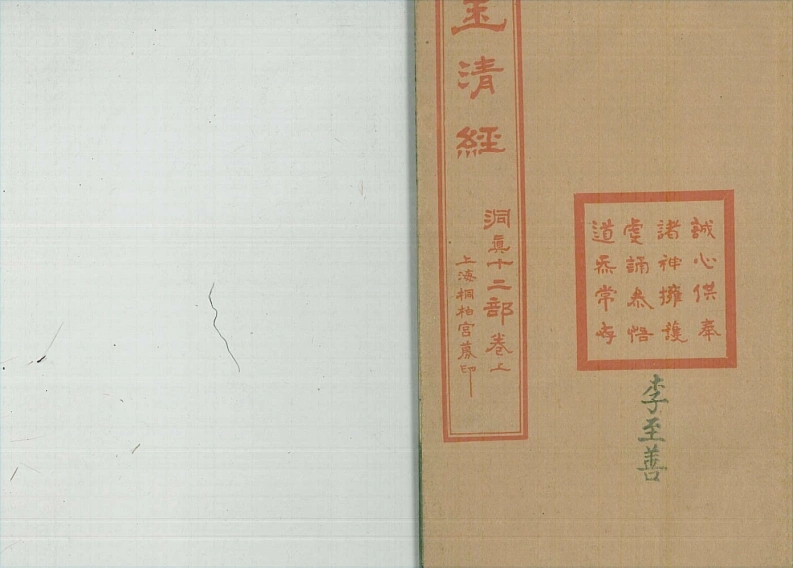 玉清經
洞眞十二部卷上
上海桐柏宮藏印
誠心供奉
諸神擁護
虔誦叅悟
道炁常存
李至善